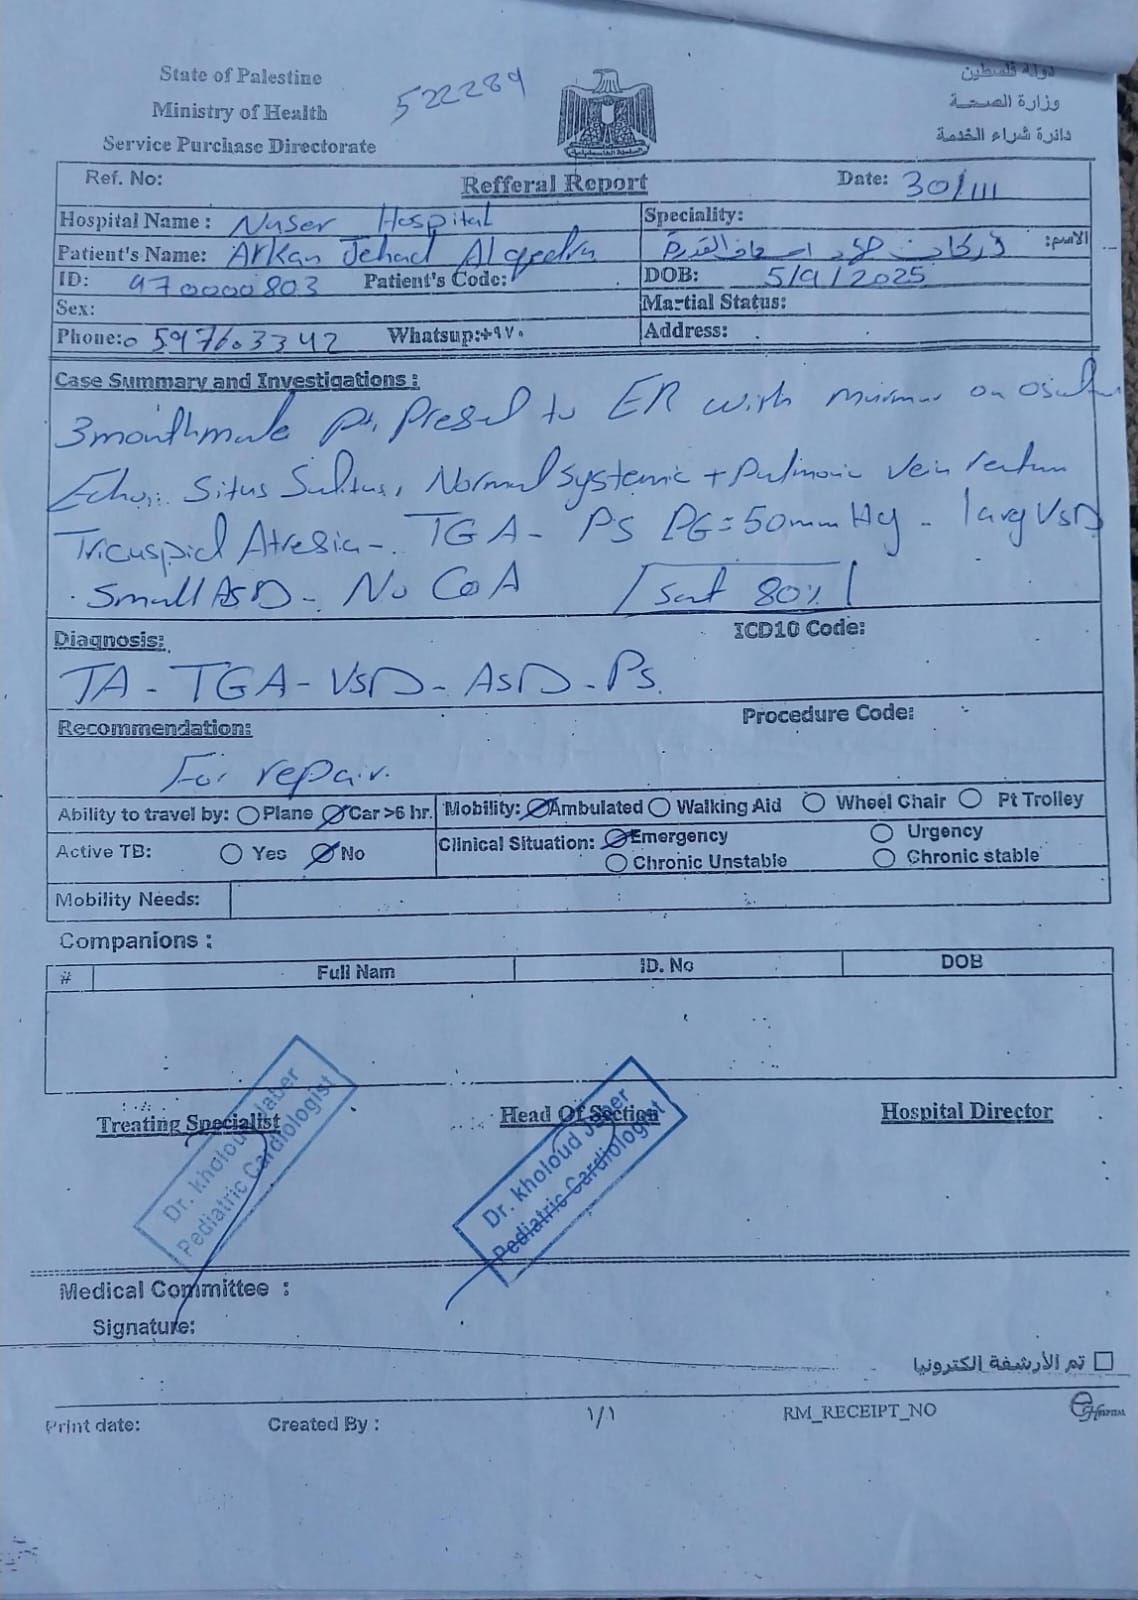 State of Palestine
Ministry of Health
Service Purchase Directorate
522289
دولة فلسطين
وزارة الصحة
دائرة شراء الخدمة
Ref. No:
Refferal Report
Date: 30/11
Hospital Name : Naser Hospital
Speciality:
Patient's Name: Arkan Jehad Alqedra
الاسم:
ID: 970000803 Patient's Code:
DOB: 5/9/2025
Sex:
Martial Status:
Phone: 0597603342 Whatsup:+٩٧٠
Address:
Case Summary and Investigations :
3 month male pt. Presed to ER with murmur on
Echo:: Situs Solitus, Normal systemic + Pulmonic vein
Tricuspid Atresia - TGA - PS PG=50mmHg - larg VSD
Small ASD - No CoA sat 80%
Diagnosis:
ICD10 Code:
TA - TGA - VSD - ASD - PS.
Recommendation:
Procedure Code:
For repair.
Ability to travel by: Plane Car >6 hr. Mobility: Ambulated Walking Aid Wheel Chair Pt Trolley
Active TB: Yes No
Clinical Situation: Emergency Urgency
Chronic Unstable Chronic stable
Mobility Needs:
Companions :
# Full Nam ID. No DOB
Treating Specialist
Head Of Section
Hospital Director
Dr. kholoud Jaber
Pediatric Cardiologist
Dr. kholoud Jaber
Pediatric Cardiologist
Medical Committee :
Signature:
تم الأرشفة الكترونيا
Print date: Created By : ١/١ RM_RECEIPT_NO